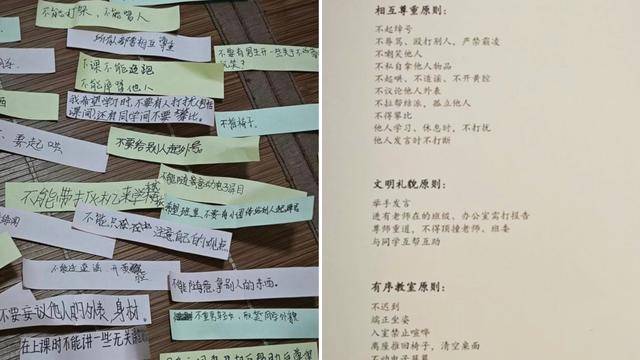 不能打架、不能骂人
所有人都要相互尊重
不要有男生开一些关于不
元笑?
下课不能追跑
不能嘲笑他人
我希望学习时,不要有人打扰
课间,还有同学间不要攀比。
不能
要起哄
不要给别人起外号
不能随意动电子屏目
不能带手机来学校
希望班里不要有小团体
不能只
注意自己的
不能造谣 开黄腔
不能随意拿别人的东西。
不要妄议他人的外表,身材。
在上课时不能讲一些无关
相互尊重原则:
不起绰号
不辱骂、殴打别人,严禁霸凌
不嘲笑他人
不私自拿他人物品
不起哄、不造谣、不开黄腔
不议论他人外表
不拉帮结派,孤立他人
不得攀比
他人学习、休息时,不打扰
他人发言时不打断
文明礼貌原则:
举手发言
进有老师在的班级、办公室需打报告
尊师重道,不得顶撞老师、班委
与同学互帮互助
有序教室原则:
不迟到
端正坐姿
入室禁止喧哗
离座推回椅子,清空桌面
不动电子屏幕